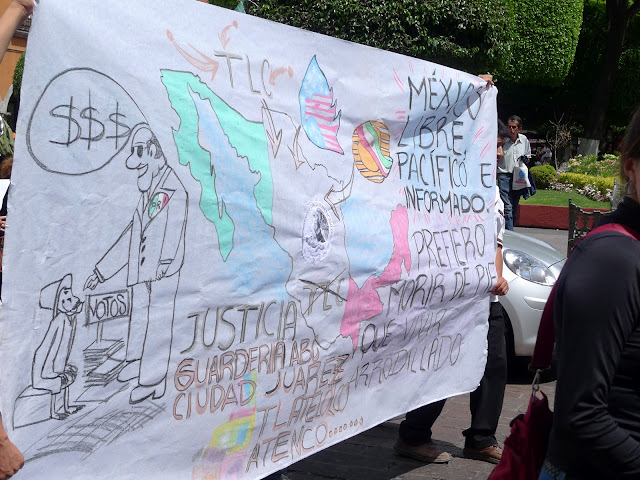 $$$
TLC
MÉXICO
LIBRE
PACÍFICO E
INFORMADO.
PREFIERO
MORIR DE PIE
QUE VIVIR
ARRODILLADO
VOTOS
JUSTICIA
GUARDERIA ABC
CIUDAD JUAREZ
TLATELCO
ATENCO........